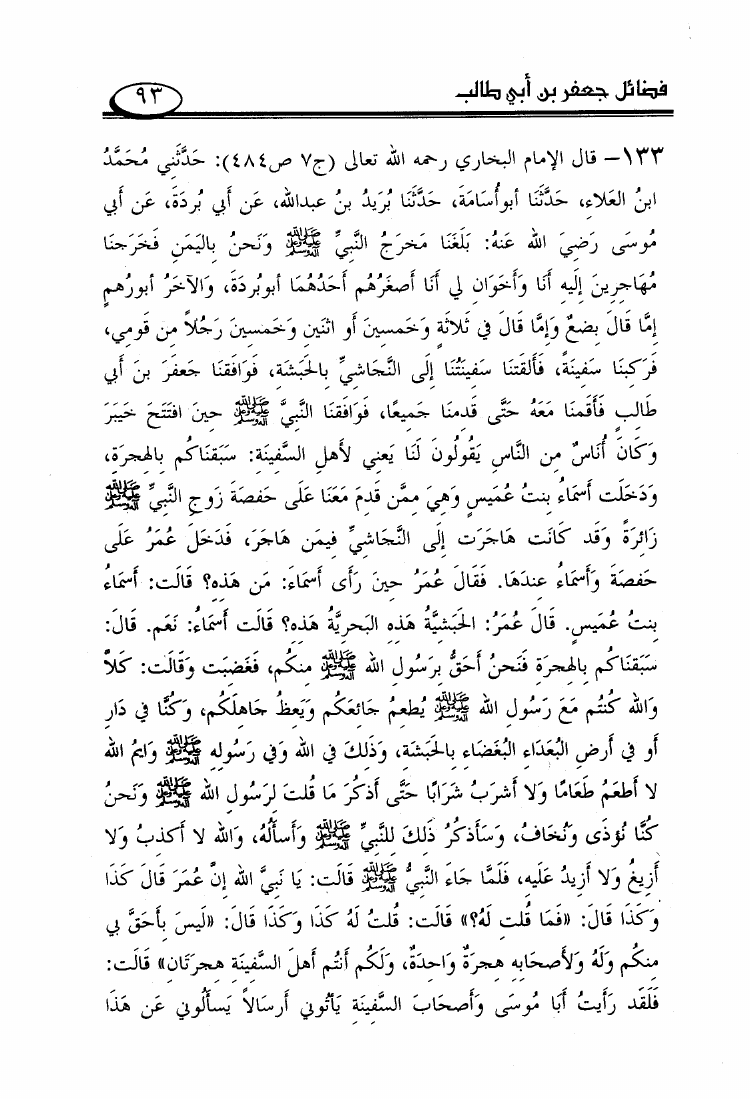 فضائل جعفر بن أبي طالب
٩٣
١٣٣- قال الإمام البخاري رحمه الله تعالى (ج٧ ص٤٨٤): حَدَّثَنِي مُحَمَّدُ
ابنُ العَلاَءِ، حَدَّثَنَا أبوأُسَامَةَ، حَدَّثَنَا بُرَيدُ بنُ عبدالله، عَن أَبِي بُردَةَ، عَن أَبِي
مُوسَى رَضِيَ الله عَنهُ: بَلَغَنَا مَخرَجُ النَّبِيِّ ﷺ وَنَحنُ بِاليَمَنِ فَخَرَجنَا
مُهَاجِرِينَ إِلَيهِ أَنَا وَأَخَوَانِ لِي أَنَا أَصغَرُهُم أَحَدُهُمَا أبوبُردَةَ، وَالآخَرُ أبورُهمٍ
إِمَّا قَالَ بِضعٌ وَإِمَّا قَالَ فِي ثَلاَثَةٍ وَخَمسِينَ أَو اثنَينِ وَخَمسِينَ رَجُلاً مِن قَومِي،
فَرَكِبنَا سَفِينَةً، فَأَلقَتنَا سَفِينَتُنَا إِلَى النَّجَاشِيِّ بِالحَبَشَةِ، فَوَافَقنَا جَعفَرَ بنَ أَبِي
طَالِبٍ فَأَقَمنَا مَعَهُ حَتَّى قَدِمنَا جَمِيعًا، فَوَافَقنَا النَّبِيَّ ﷺ حِينَ افتَتَحَ خَيبَرَ
وَكَانَ أُنَاسٌ مِن النَّاسِ يَقُولُونَ لَنَا يَعنِي لأَهلِ السَّفِينَةِ: سَبَقنَاكُم بِالهِجرَةِ،
وَدَخَلَت أَسمَاءُ بِنتُ عُمَيسٍ وَهِيَ مِمَّن قَدِمَ مَعَنَا عَلَى حَفصَةَ زَوجِ النَّبِيِّ ﷺ
زَائِرَةً وَقَد كَانَت هَاجَرَت إِلَى النَّجَاشِيِّ فِيمَن هَاجَرَ، فَدَخَلَ عُمَرُ عَلَى
حَفصَةَ وَأَسمَاءُ عِندَهَا. فَقَالَ عُمَرُ حِينَ رَأَى أَسمَاءَ: مَن هَذِهِ؟ قَالَت: أَسمَاءُ
بِنتُ عُمَيسٍ. قَالَ عُمَرُ: الحَبَشِيَّةُ هَذِهِ البَحرِيَّةُ هَذِهِ؟ قَالَت أَسمَاءُ: نَعَم. قَالَ:
سَبَقنَاكُم بِالهِجرَةِ فَنَحنُ أَحَقُّ بِرَسُولِ الله ﷺ مِنكُم، فَغَضِبَت وَقَالَت: كَلاَّ
وَالله كُنتُم مَعَ رَسُولِ الله ﷺ يُطعِمُ جَائِعَكُم وَيَعِظُ جَاهِلَكُم، وَكُنَّا فِي دَارِ
أَو فِي أَرضِ البُعَدَاءِ البُغَضَاءِ بِالحَبَشَةِ، وَذَلِكَ فِي الله وَفِي رَسُولِهِ ﷺ وَايمُ الله
لا أَطعَمُ طَعَامًا وَلا أَشرَبُ شَرَابًا حَتَّى أَذكُرَ مَا قُلتَ لِرَسُولِ الله ﷺ وَنَحنُ
كُنَّا نُؤذَى وَنُخَافُ، وَسَأَذكُرُ ذَلِكَ لِلنَّبِيِّ ﷺ وَأَسأَلُهُ، وَالله لا أَكذِبُ وَلا
أَزِيغُ وَلا أَزِيدُ عَلَيهِ، فَلَمَّا جَاءَ النَّبِيُّ ﷺ قَالَت: يَا نَبِيَّ الله إِنَّ عُمَرَ قَالَ كَذَا
وَكَذَا قَالَ: «فَمَا قُلتِ لَهُ؟» قَالَت: قُلتُ لَهُ كَذَا وَكَذَا قَالَ: «لَيسَ بِأَحَقَّ بِي
مِنكُم وَلَهُ وَلأَصحَابِهِ هِجرَةٌ وَاحِدَةٌ، وَلَكُم أَنتُم أَهلَ السَّفِينَةِ هِجرَتَانِ» قَالَت:
فَلَقَد رَأَيتُ أَبَا مُوسَى وَأَصحَابَ السَّفِينَةِ يَأتُونِي أَرسَالاً يَسأَلُونِي عَن هَذَا